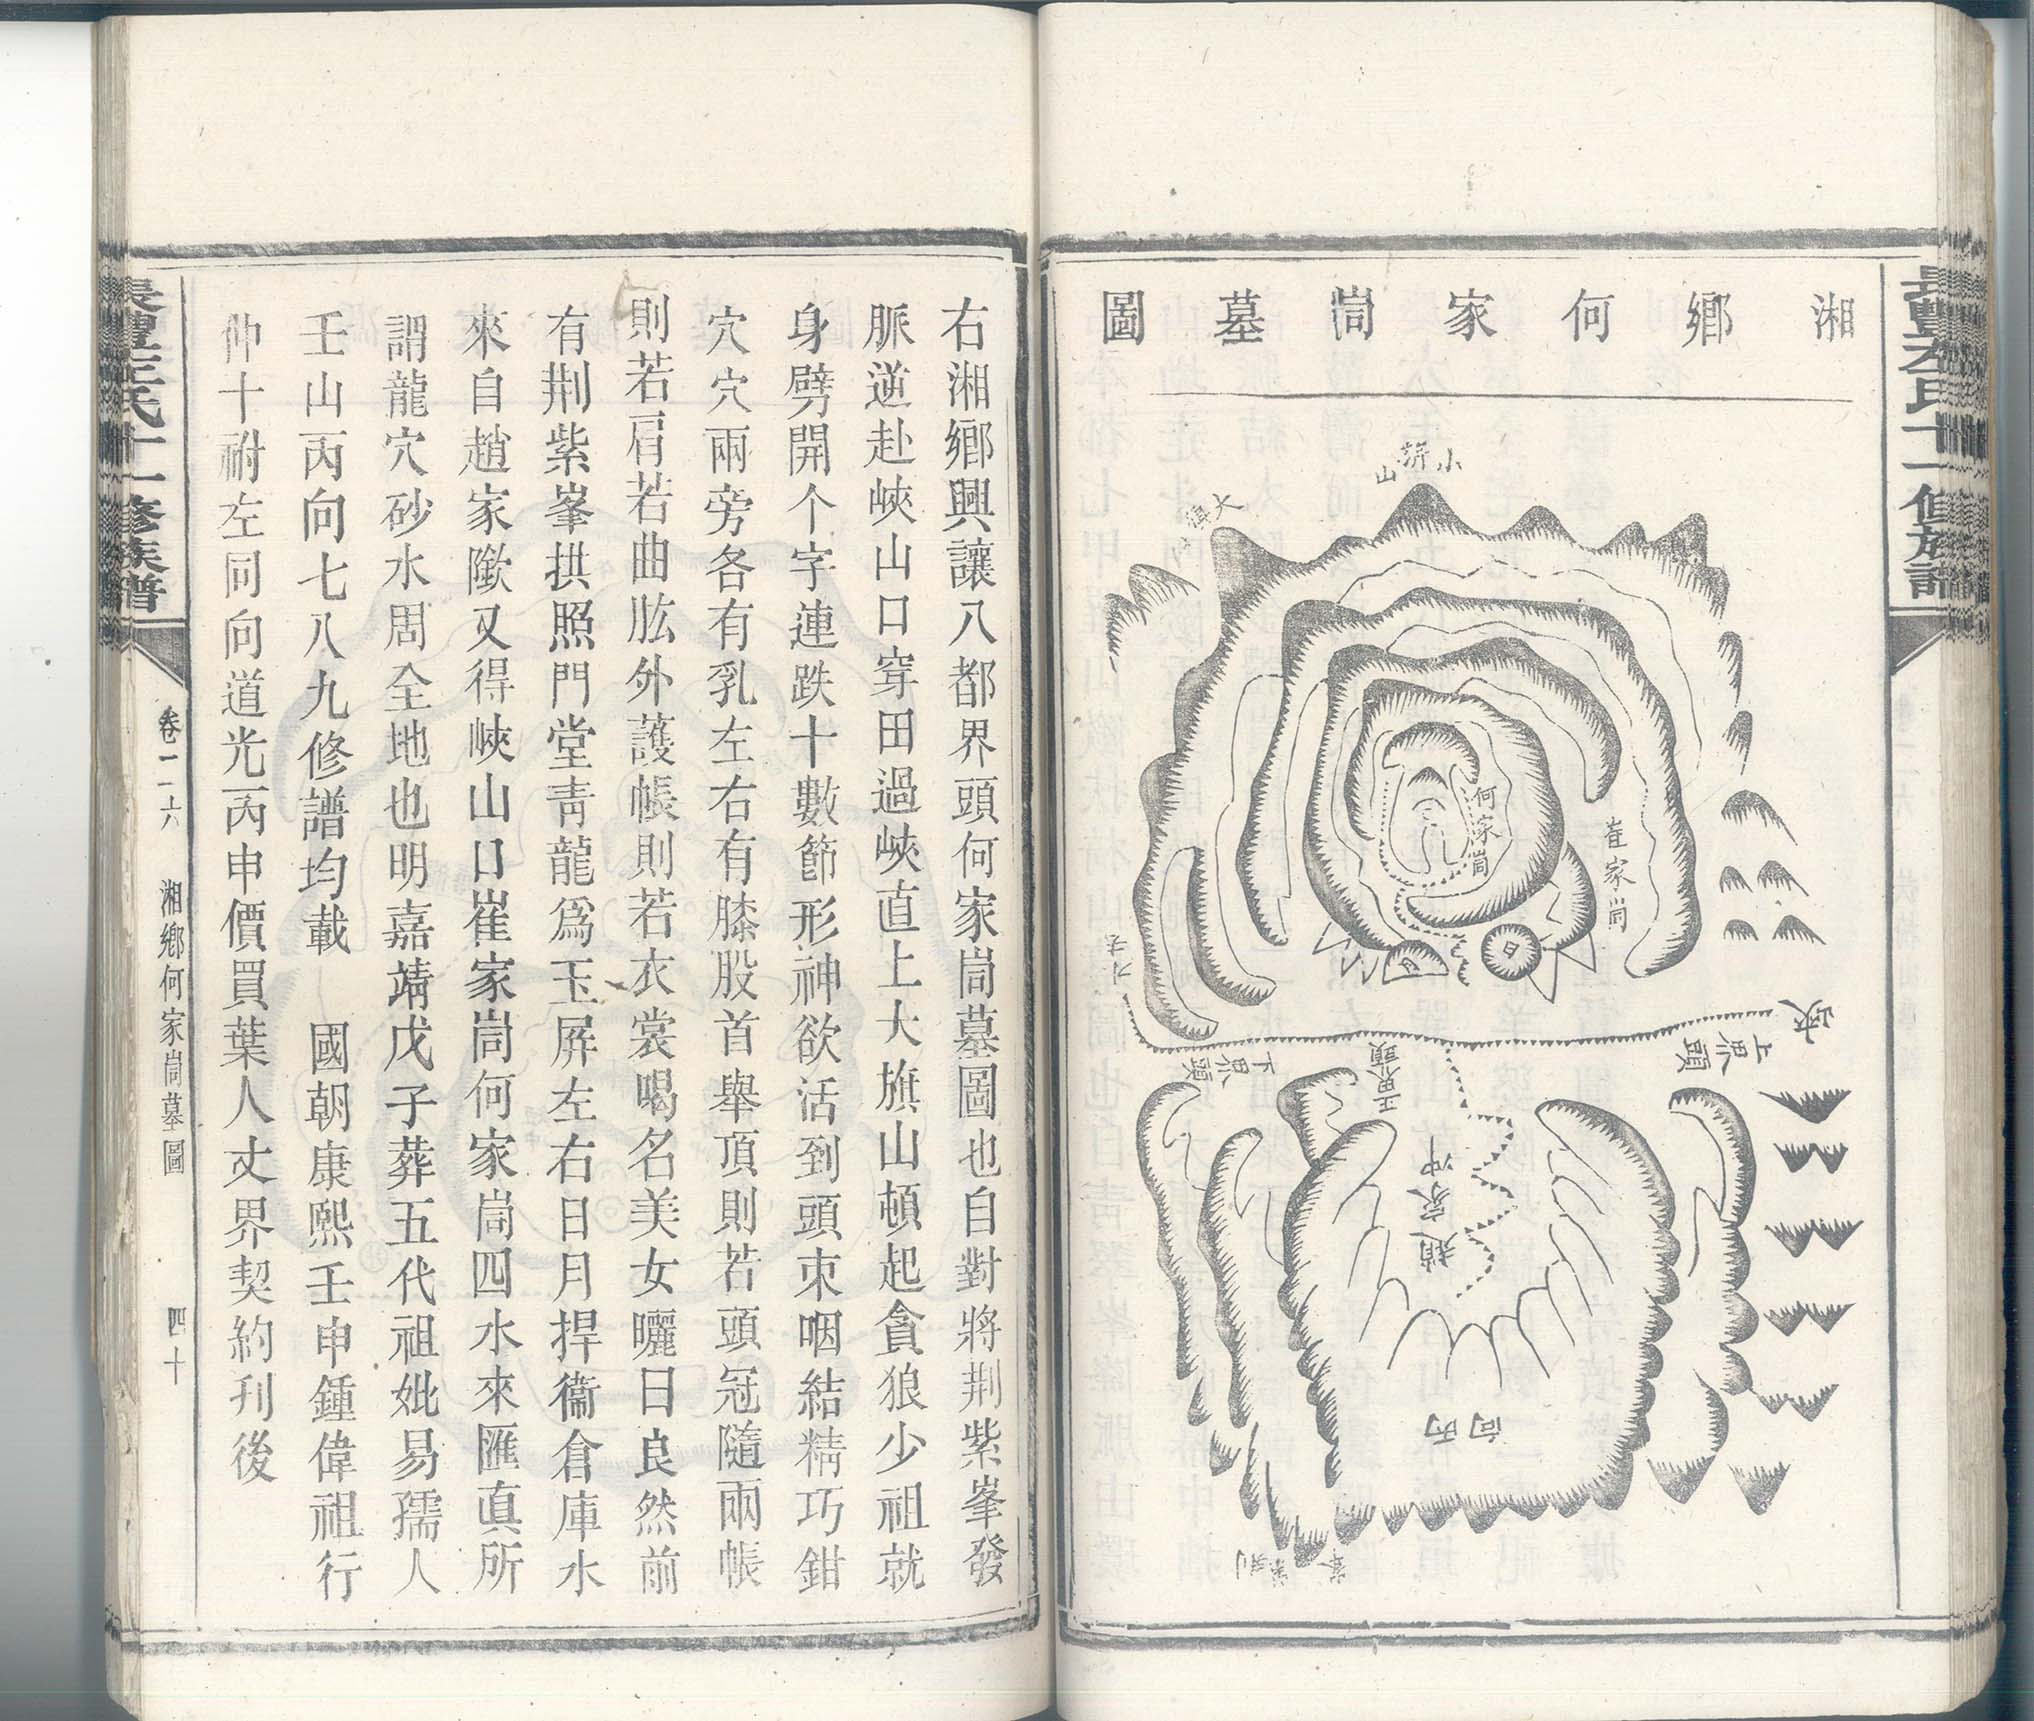 湘鄉何家崗墓圖
小屏山
大嶺
何家崗
崔家崗
日
月
水去
峽
上界頭
正界頭
下界頭
趙家冲
丙向
荆紫峯
右湘鄉興讓八都界頭何家崗墓圖也自對將荆紫峯發
脈逆赴峽山口穿田過峽直上大旗山頓起貪狼少祖就
身劈開个字連跌十數節形神欲活到頭束咽結精巧鉗
穴穴兩旁各有乳左右有膝股首舉頂則若頭冠隨兩帳
則若肩若曲肱外護帳則若衣裳喝名美女曬日良然前
有荆紫峯拱照門堂青龍爲玉屏左右日月捍衞倉庫水
來自趙家隞又得峽山口崔家崗何家崗四水來匯眞所
謂龍穴砂水周全地也明嘉靖戊子葬五代祖妣易孺人
壬山丙向七八九修譜均載　國朝康熙壬申鍾偉祖行
仲十祔左同向道光丙申價買葉人丈界契約刊後
左氏十一修族譜
卷二六　湘鄉何家崗墓圖　四十